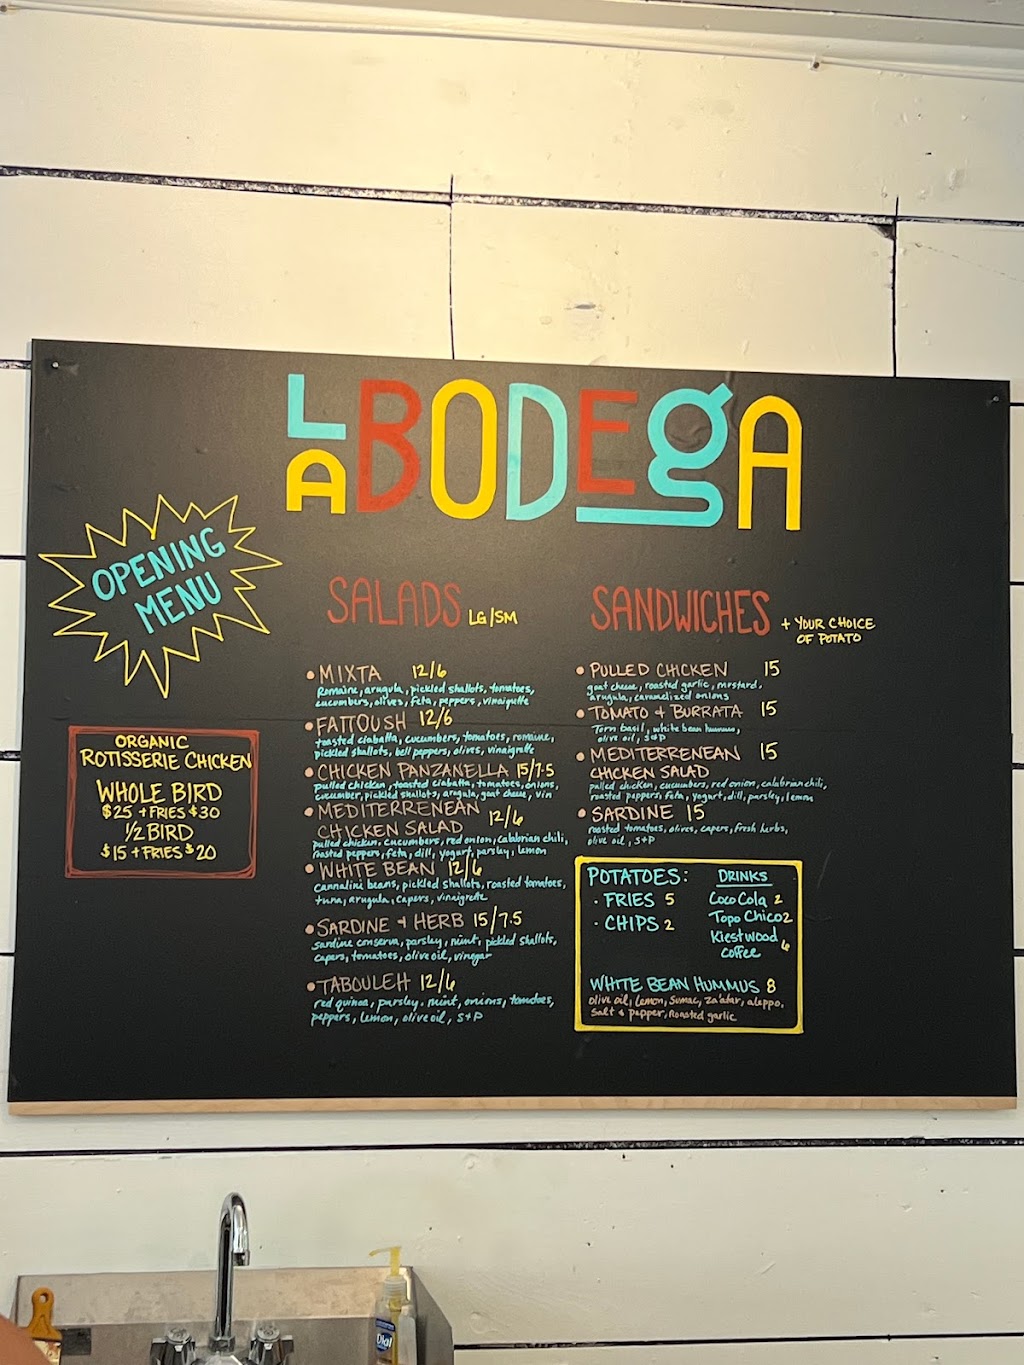 LA BODEGA
OPENING
MENU
ORGANIC
ROTISSERIE CHICKEN
WHOLE BIRD
$25 + FRIES $30
1/2 BIRD
$15 + FRIES $20
SALADS LG/SM
MIXTA 12/6
Romaine, arugula, pickled shallots, tomatoes,
cucumbers, olives, feta, peppers, vinaigrette
FATTOUSH 12/6
toasted ciabatta, cucumbers, tomatoes, romaine,
pickled shallots, bell peppers, olives, vinaigrette
CHICKEN PANZANELLA 15/7.5
pulled chicken, toasted ciabatta, tomatoes, onions,
cucumber, pickled shallots, arugula, goat cheese, vin
MEDITERRENEAN
CHICKEN SALAD 12/6
pulled chicken, cucumbers, red onion, calabrian chili,
roasted peppers, feta, dill, yogurt, parsley, lemon
WHITE BEAN 12/6
cannalini beans, pickled shallots, roasted tomatoes,
tuna, arugula, capers, vinaigrette
SARDINE + HERB 15/7.5
sardine conserva, parsley, mint, pickled shallots,
capers, tomatoes, olive oil, vinegar
TABOULEH 12/6
red quinoa, parsley, mint, onions, tomatoes,
peppers, lemon, olive oil, S+P
SANDWICHES + YOUR CHOICE
OF POTATO
PULLED CHICKEN 15
goat cheese, roasted garlic, mustard,
arugula, caramelized onions
TOMATO + BURRATA 15
Torn basil, white bean hummus,
olive oil, S+P
MEDITERRENEAN 15
CHICKEN SALAD
pulled chicken, cucumbers, red onion, calabrian chili,
roasted peppers, feta, yogurt, dill, parsley, lemon
SARDINE 15
roasted tomatoes, olives, capers, fresh herbs,
olive oil, S+P
POTATOES:
· FRIES 5
· CHIPS 2
DRINKS
Coco Cola 2
Topo Chico 2
Kiestwood
coffee 6
WHITE BEAN HUMMUS 8
olive oil, lemon, sumac, za'atar, aleppo,
salt & pepper, Roasted garlic
Dial